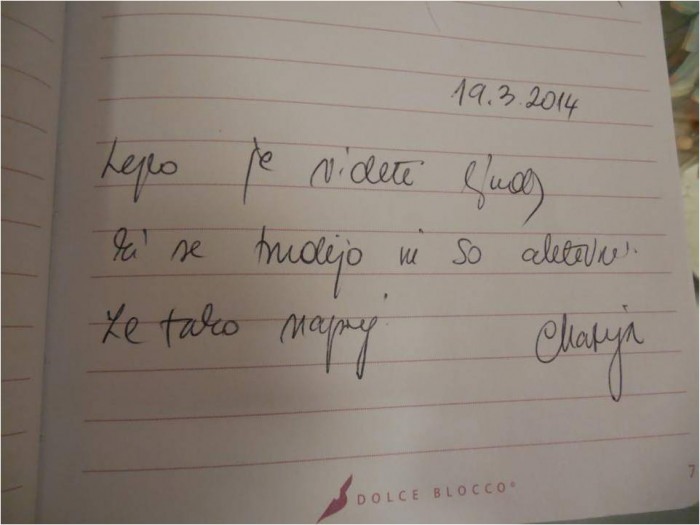 19.3.2014
Lepo je videti ljudi
ki se trudijo in so aktivni.
Le tako naprej
Marija
DOLCE BLOCCO®
7